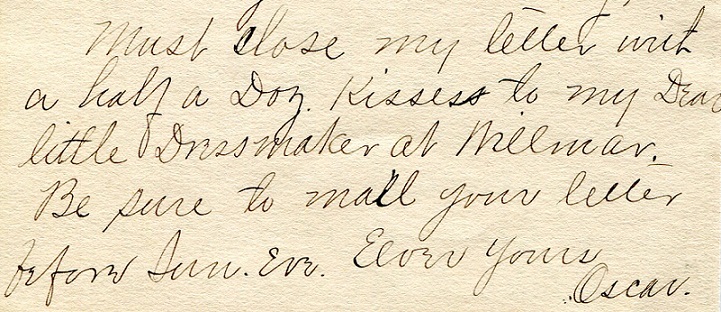 Must close my letter with
a half a Doz. Kissess to my Dear
little Dressmaker at Willmar.
Be sure to mail your letter
before Sun. Eve. Ever Yours
Oscar.